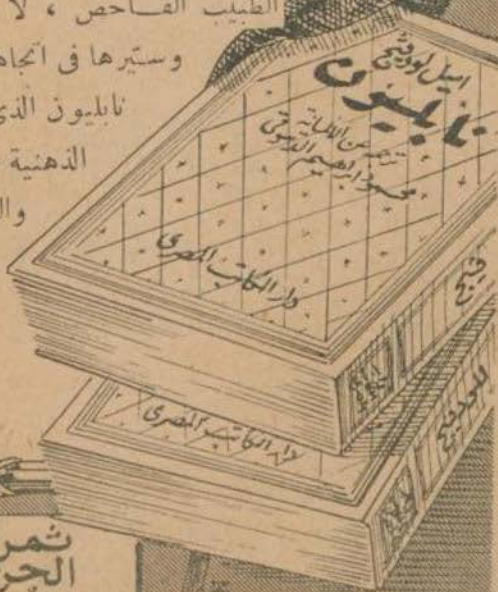 الطبيب الفاحص ، لا
وسيرها فى اتجاه
نابليون الذى
الذهنية
وال
اميل لودفيج
نابليون
ترجمه عن الألمانية
محمود ابراهيم الدسوقى
دار الكاتب المصرى
فيج
لودفيج
دار الكاتب المصرى
ثمر
الجز